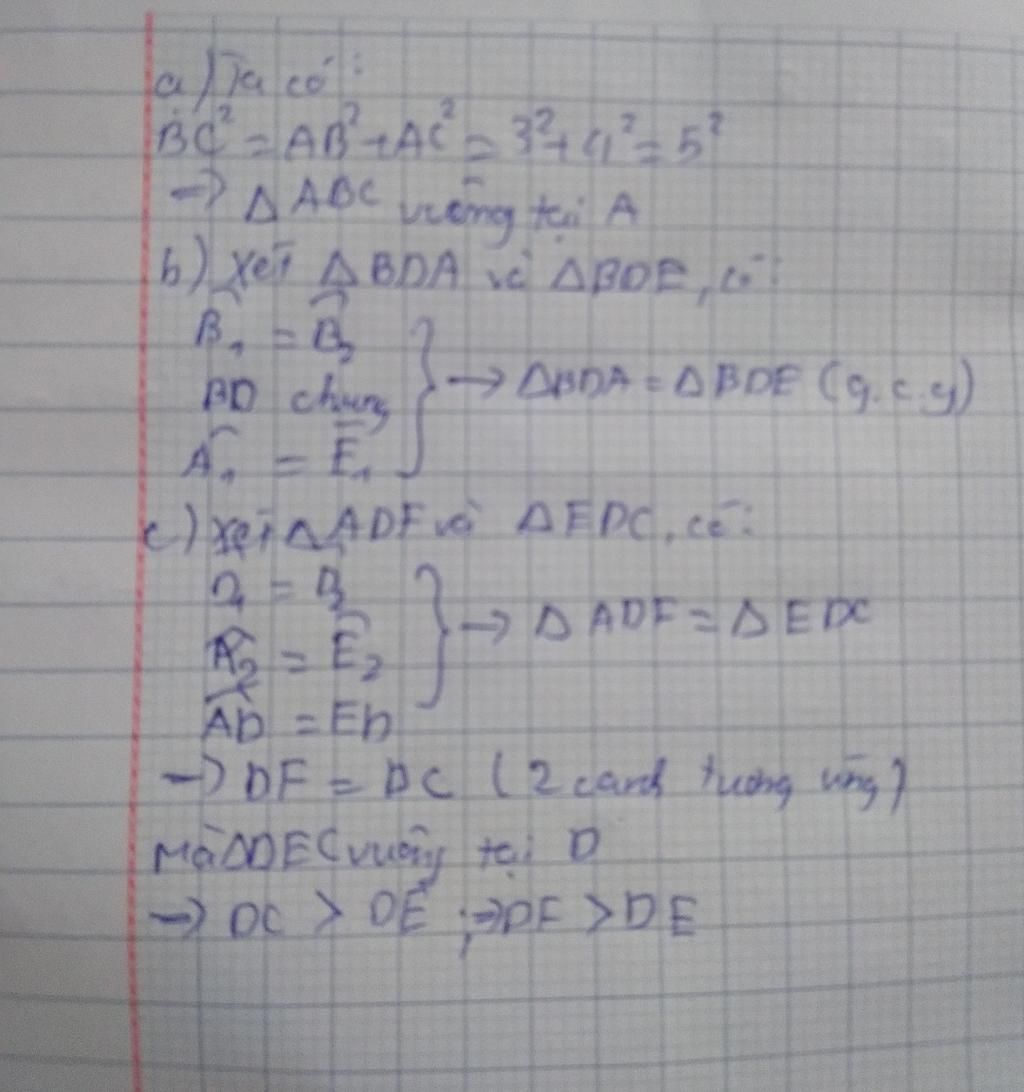 a) Ta có:
BC² = AB² + AC² = 3² + 4² = 5²
→ ΔABC vuông tại A
b) Xét ΔBDA và ΔBDE, có:
B̂₁ = B̂₂
BD chung
Â₁ = Ê₁
→ ΔBDA = ΔBDE (g.c.g)
c) Xét ΔADF và ΔEDC, có:
Â₂ = Ê₂
AD = ED
→ ΔADF = ΔEDC
→ DF = DC (2 cạnh tương ứng)
Mà ΔDEC vuông tại D
→ DC > DE ; → DF > DE